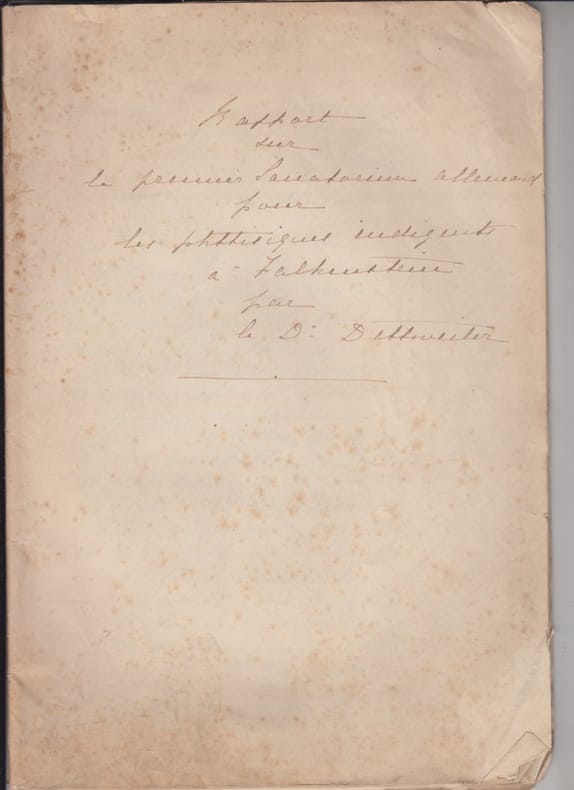 Rapport
sur
le premier Sanatorium allemand
pour
les phthisiques indigents
à Falkenstein
par
le Dr Dettweiler